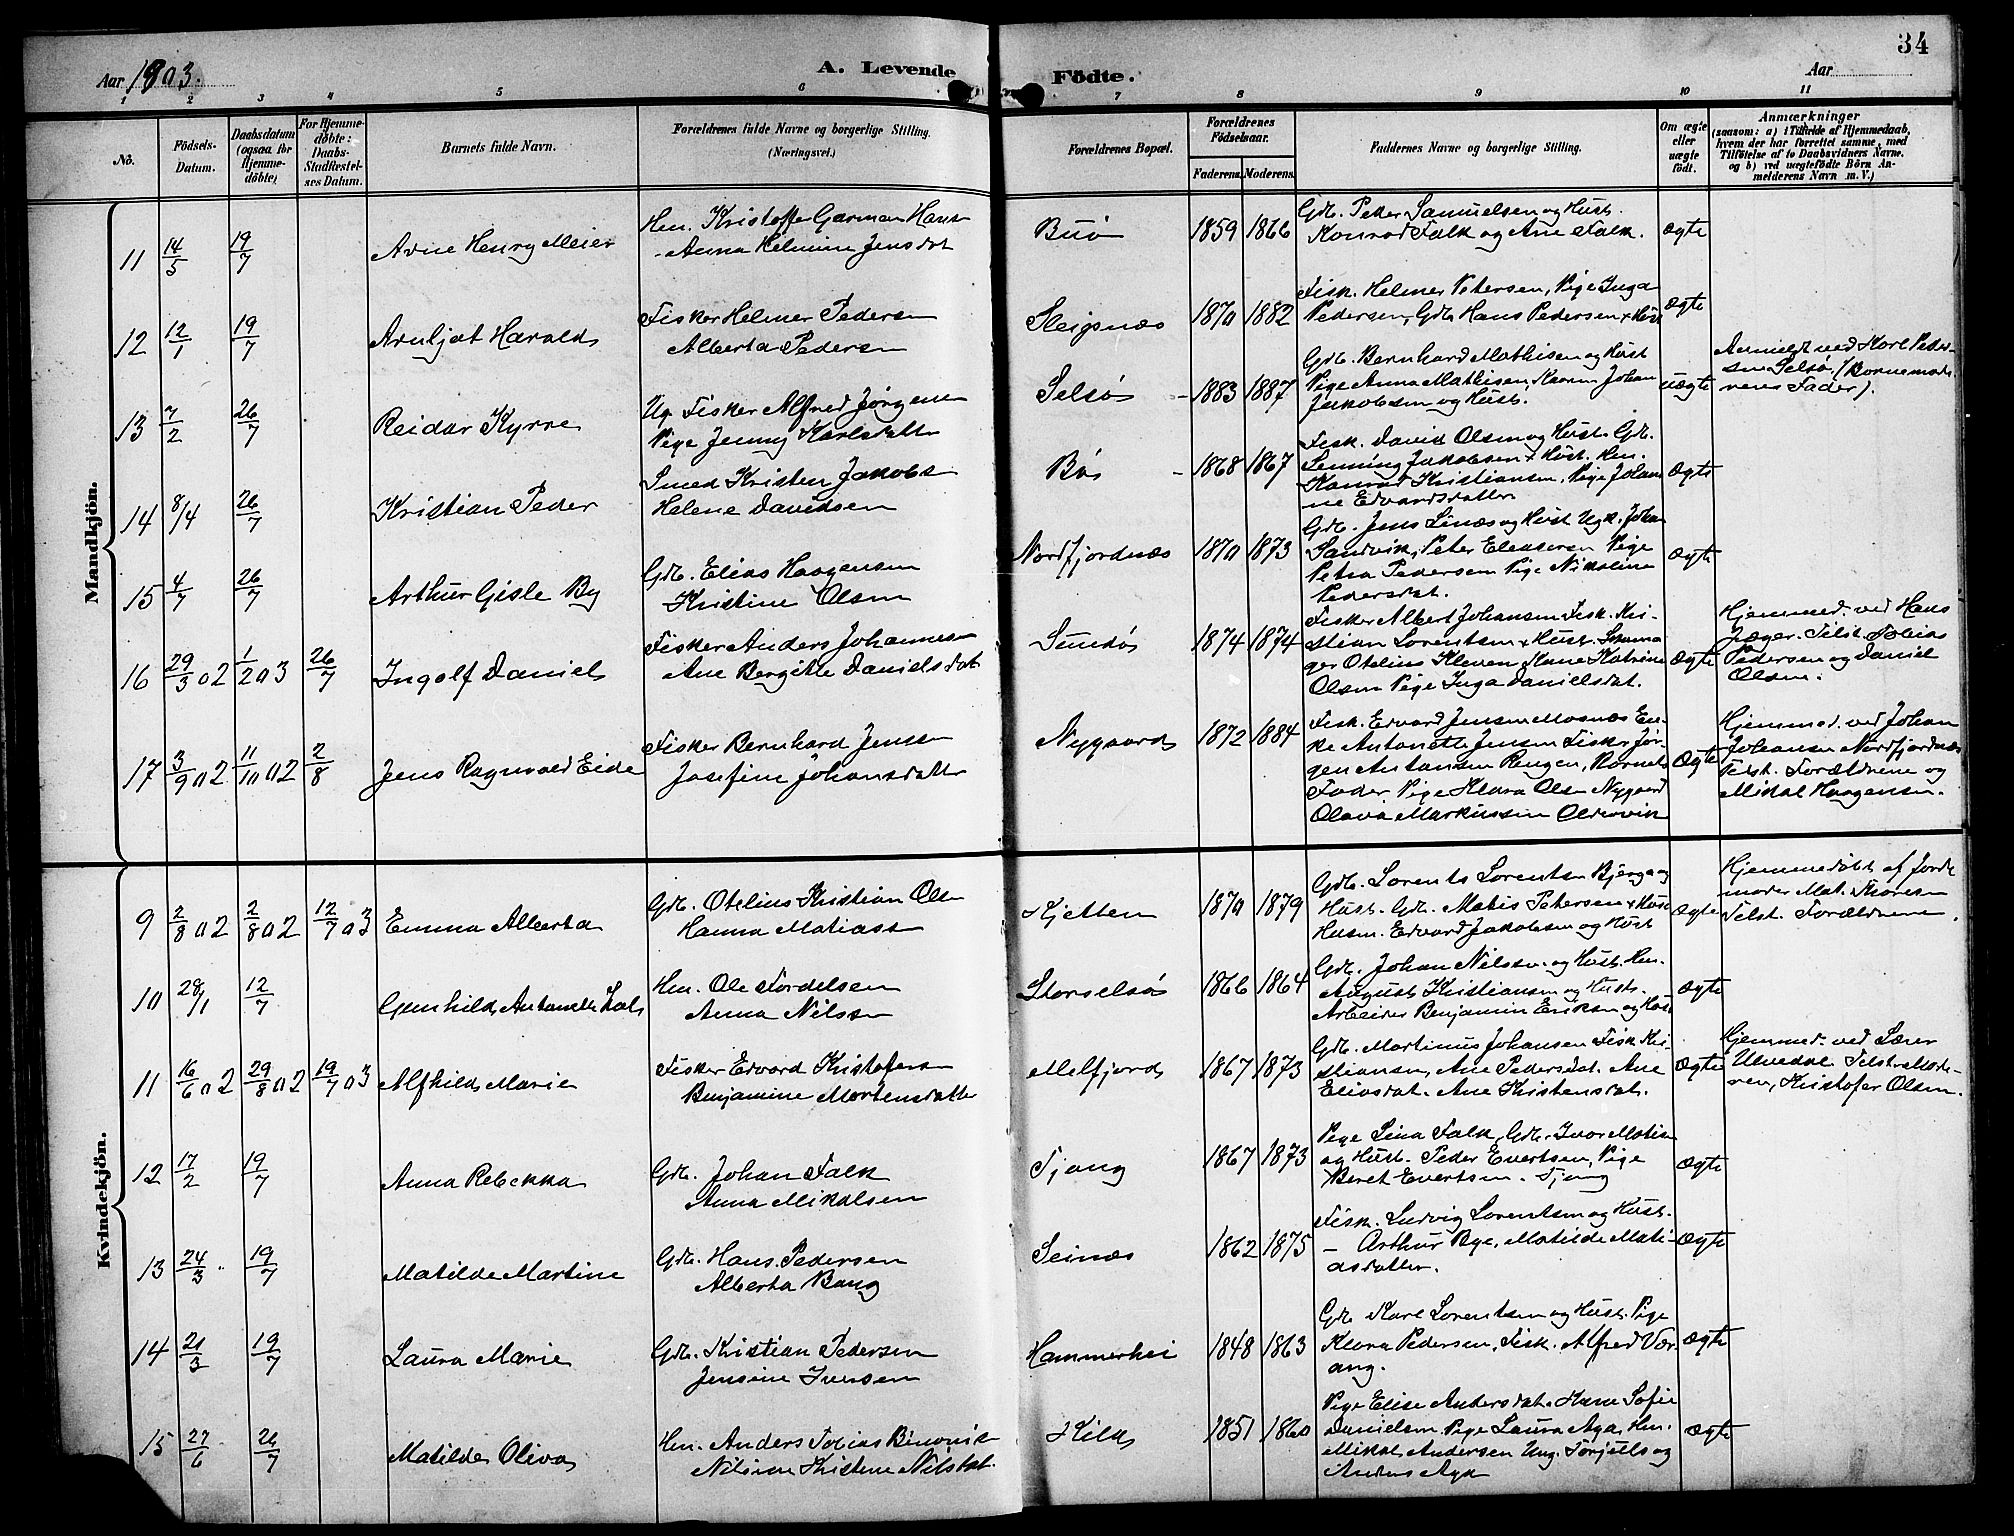 34
Aar 1903.
A. Levende Födte.
Aar
1 2 3 4 5 6 7 8 9 10 11
No.
Födsels-Datum.
Daabsdatum (ogsaa for Hjemme-döbte)
For Hjemme-döbte: Daabs-Stadfæstel-ses Datum.
Barnets fulde Navn.
Forældrenes fulde Navne og borgerlige Stilling. (Næringsvei.)
Forældrenes Bopæl.
Forældrenes Födselsaar.
Faderens. Moderens.
Faddernes Navne og borgerlige Stilling.
Om ægte eller uægte födt.
Anmærkninger
(saasom: a) i Tilfælde af Hjemmedaab, hvem der har forrettet samme, med Tilföielse af to Daabsvidners Navne. og b) ved uægtefödte Börn An-melderens Navn m. V.)
Mandkjön.
11 14/5 19/7 Arne Henry Meier
Hm. Kristoffe Garman Hans
Anna Helmine Jensdat
Buø 1859 1866
Gdb. Peder Samuelsen og Hust.
Konrad Falk og Ane Falk.
ægte
12 12/1 19/7 Arnljot Harald
Fisker Helmer Pedersen
Alberta Pedersen
Sleignæs 1870 1882
Fisk. Helmer Petersen, Pige Inga
Pedersen, Gdb. Hans Pedersen + Hust
ægte
13 7/2 26/7 Reidar Kyrre
Ug. Fisker Alfred Jørgens
Pige Jenny Karlsdatter
Selsø 1883 1887
Gdb. Bernhard Mathisen og Hust
Pige Anna Mathisen, Karen Johan
Jakobsen og Hust.
uægte
Anmeldt ved Karl Peder-
sen Selsø (Barnemode-
rens Fader).
14 8/4 26/7 Kristian Peder
Smed Kristen Jakobs
Helene Davidsen
Bø 1868 1867
Fisk. David Olsen og Hust. Gdb.
Henning Jakobsen + Hust. Hm.
Konrad Kristiansen, Pige Johan
ne Edvardsdatter
ægte
15 4/7 26/7 Arthur Gisle By
Gdb. Elias Haagensen
Kristine Olsen
Nordfjordnæs 1870 1873
Gdb. Jens Sinæs og Hust Ugk. Johan
Sandvik, Peter Eleasersen Pige
Petra Pedersen Pige Nikoline
Pedersdat.
ægte
16 29/3 02 1/2 03 26/7 Ingolf Daniel
Fisker Anders Johannesen
Ane Bergitte Danielsdat
Sundø 1874 1874
Fisker Albert Johansen Fisk. Kri-
stian Lorentsen + Hust.
ger Otelius Kleven Kone Katrine
Olsen Pige Inga Danielsdat.
ægte
Hjemmed. ved Hans
Jæger. Tilst. Tobias
Pedersen og Daniel
Olsen.
17 3/9 02 11/10 02 2/8 Jens Ragnvald Eide
Fisker Bernhard Jensen
Josefine Johansdatter
Nygaard 1872 1884
Fisk. Edvard Jensen Mosnæs En-
ke Antonette Jensen Fisker Jør-
gen Antonsen Ringen, Barnets
Fader Pige Klara Olsen Nygaard
Olava Markussen Oldervik
ægte
Hjemmed. ved Johan
Johansen Nordfjordnæs
Tilst. Forældrene og
Mikal Haagensen.
Kvindekjön.
9 2/8 02 2/8 02 12/7 03 Emma Alberta
Gdb. Otelius Kristian Olsen
Hanna Matiassen
Kjetten 1870 1879
Gdb. Lorents Lorentsen Bjerga og
Hust. Gdb. Matis Petersen + Hust
Husm. Edvard Jakobsen og Hust
ægte
Hjemmedøbt af Jorde
moder Mat. Thoresen
Tilst. Forældrene.
10 28/1 12/7 Gunhild Antonette
Hm. Ole Tordelsen
Anna Nilssen
Storselsø 1866 1864
Gdb. Johan Nilsen og Hust. Hm.
August Kristiansen og Hust.
Arbeider Benjamin Eriksen og Hust
ægte
11 16/6 02 29/8 02 19/7 03 Alfhild Marie
Fisker Edvard Kristofersen
Benjamine Mortensdatter
Melfjord 1867 1873
Gdb. Martinus Johansen Fisk. Kri-
stiansen, Ane Pedersdat. Ane
Eliasdat. Ane Kristensdat.
ægte
Hjemmed. ved Lærer
Ulvedal. Tilst. Mode-
ren, Kristofer Olsen.
12 17/2 19/7 Anna Rebekka
Gdb. Johan Falk
Anna Mikalsen
Tjong 1867 1873
Pige Lina Falk, Gdb. Ivar Matisen
og Hust. Peder Evertsen, Pige
Beret Evertsen. Tjong
ægte
13 24/3 19/7 Matilde Martine
Gdb. Hans Pedersen
Alberta Bang
Seinæs 1862 1875
Fisk. Ludvig Lorentsen og Hust.
– Arthur Bye, Matilde Mati-
asdatter.
ægte
14 21/3 19/7 Laura Marie
Gdb. Kristian Pedersen
Jensine Iversen
Hammerhei 1848 1863
Gdb Karl Lorentsen og Hust. Pige
Klara Pedersen, Fisk. Alfred Vær
ang.
ægte
15 27/6 26/7 Matilde Oliva
Hm. Anders Tobias
Nilsine Kristine Nilsdat.
Kila 1851 1860
Pige Elise Andersdat. Kone Sofie
Danielsen Pige Laura Aga, Hm.
Mikal Andersen Ung. Torjells og
Anders Aga
ægte